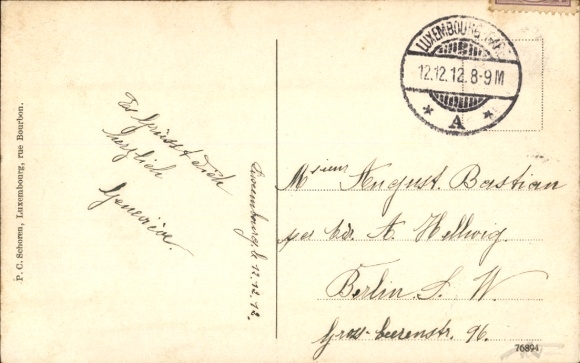 P. C. Schoren, Luxembourg, rue Bourbon.
Es grüsst dich
herzlich
Geneviève.
Luxembourg, le 12.12.12.
LUXEMBOURG GARE
12.12.12.8-9M
* A *
Msieur August Bastian
per Adr. A. Hellwig.
Berlin S. W.
Gross-beerenstr. 96.
76894